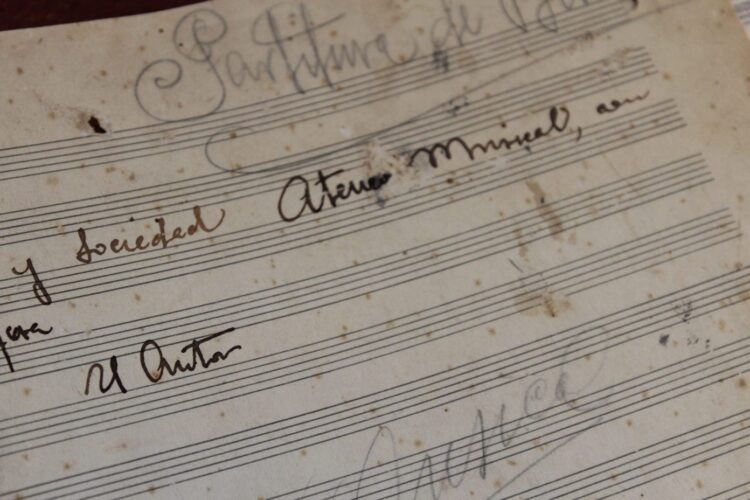 Partitura de
y Sociedad Ateneo Musical, con
El Autor